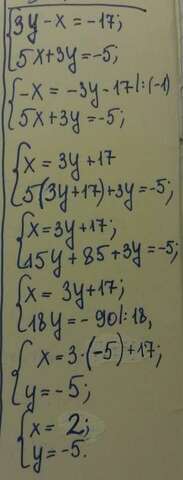 3y-x=-17;
5x+3y=-5;
-x=-3y-17|:(-1)
5x+3y=-5;
x=3y+17
5(3y+17)+3y=-5;
x=3y+17;
15y+85+3y=-5;
x=3y+17;
18y=-90|:18,
x=3·(-5)+17;
y=-5;
x=2;
y=-5.